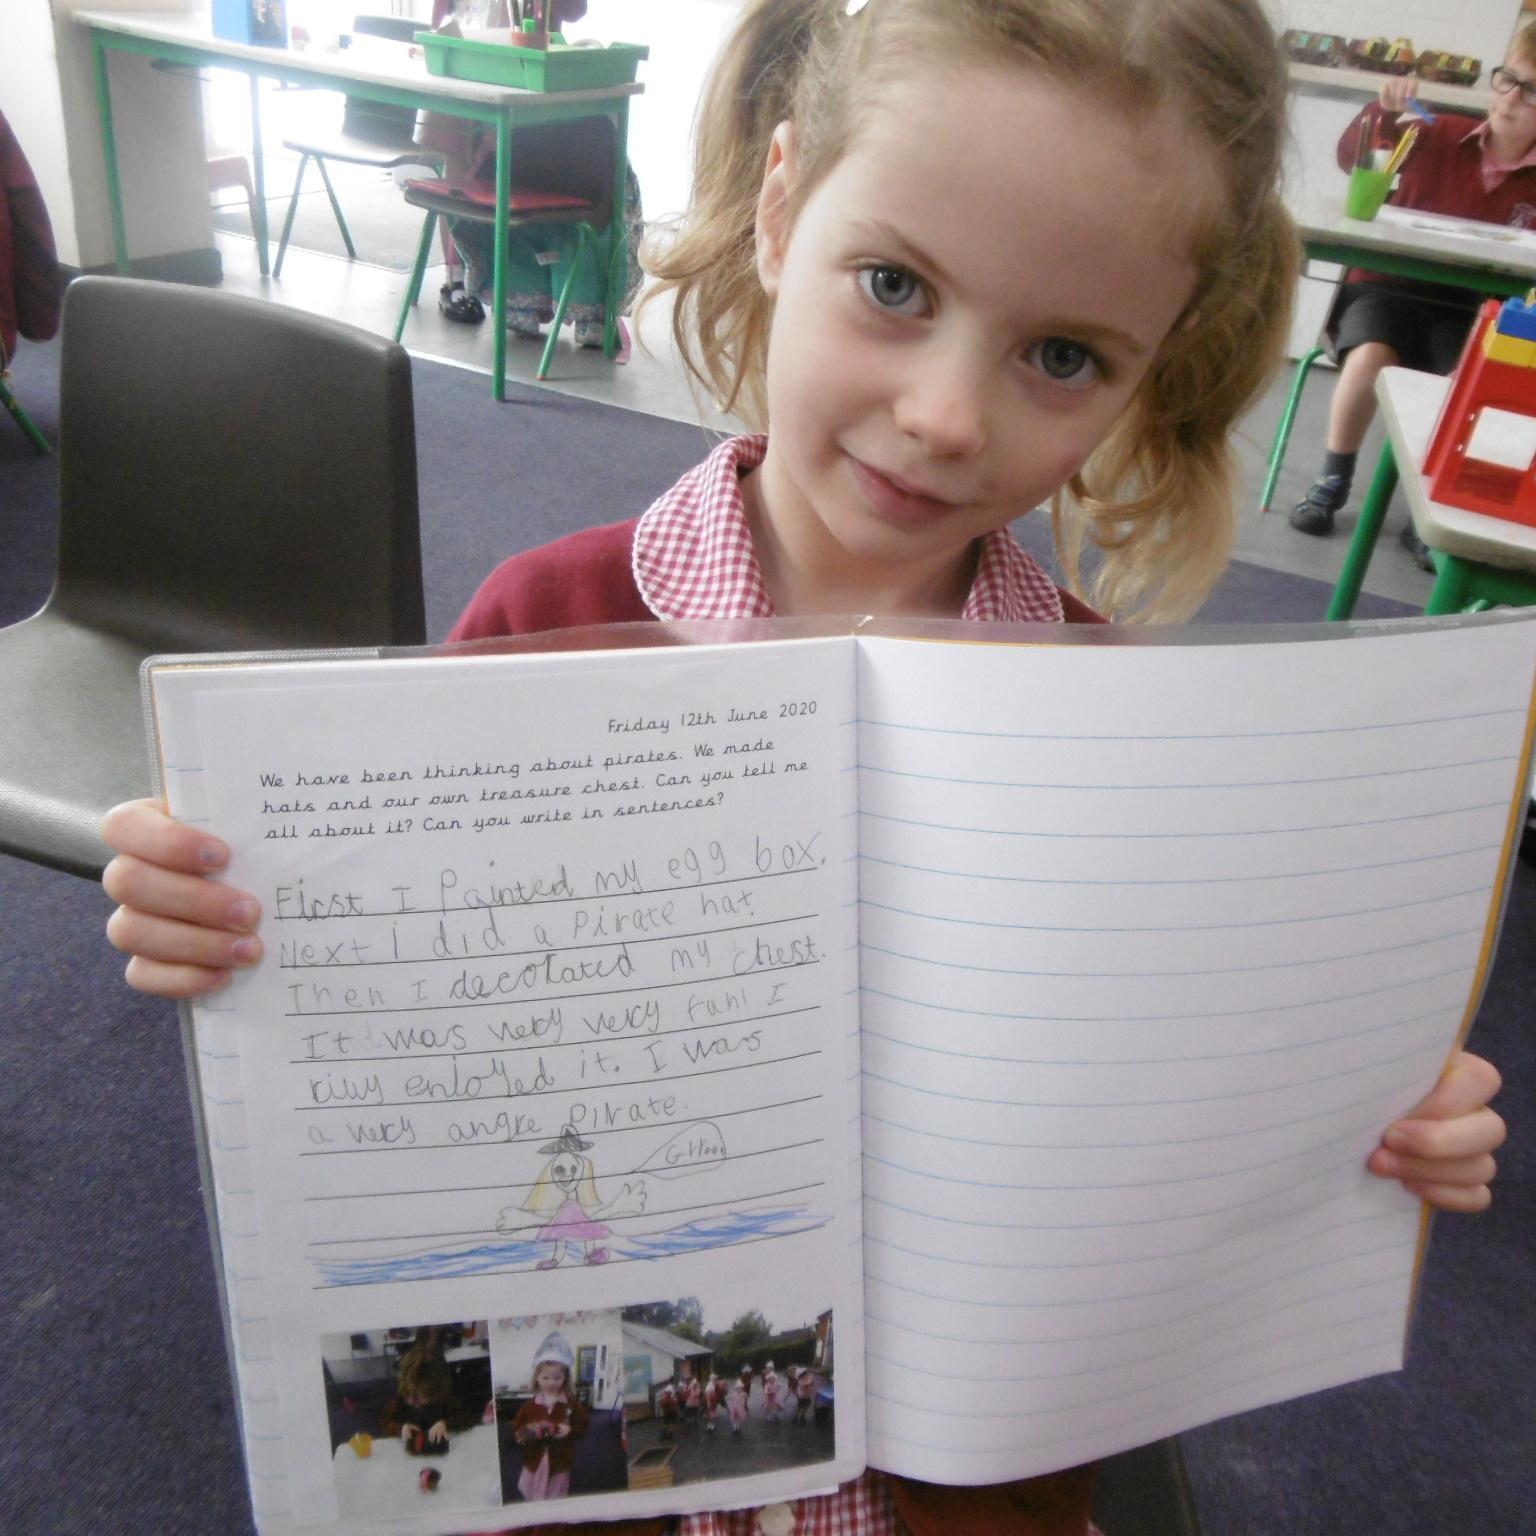 Friday 12th June 2020
We have been thinking about pirates. We made
hats and our own treasure chest. Can you tell me
all about it? Can you write in sentences?
First I Painted my egg box.
Next i did a Pirate hat.
Then I decorated my chest.
It was very very fun! I
rilly enjoyed it. I was
a very angre Pirate.
Grrr...